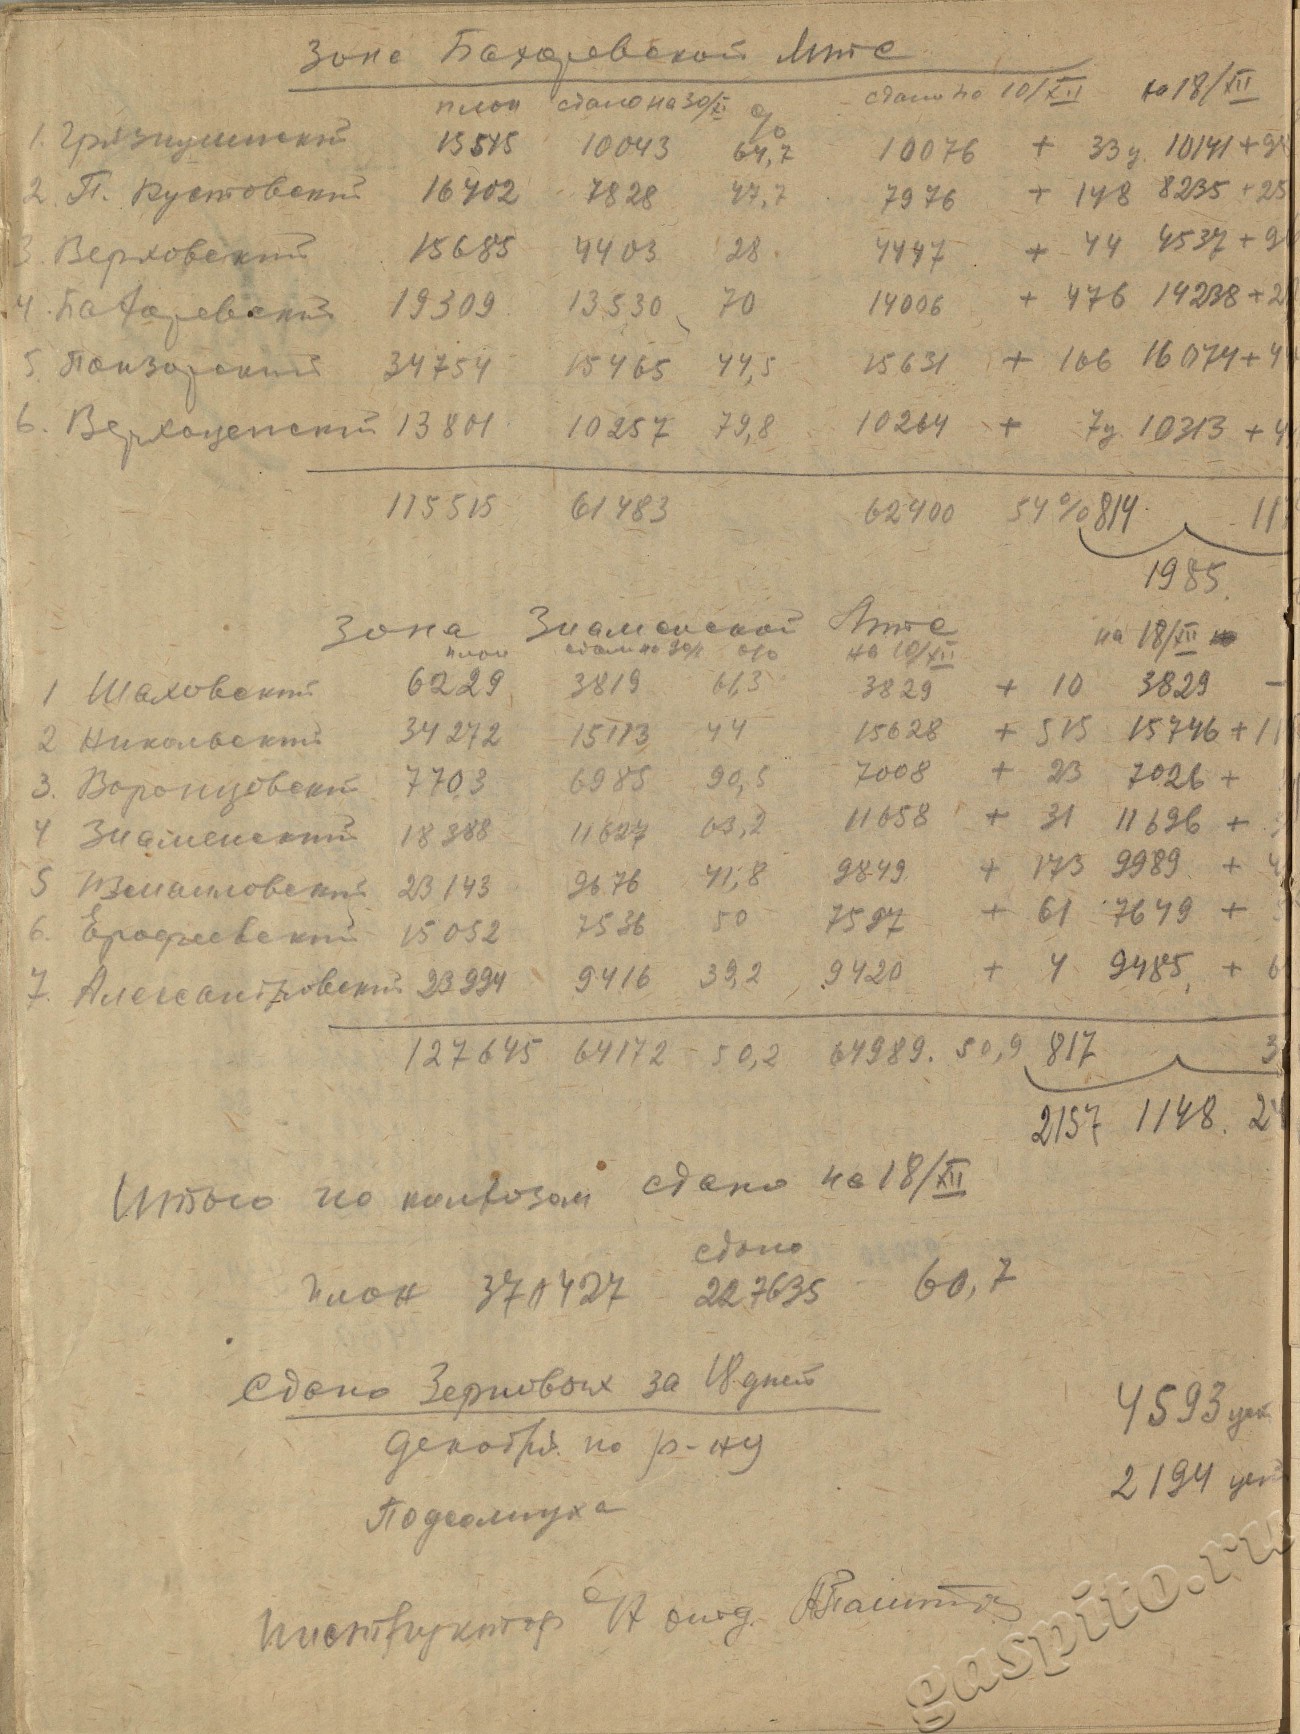 Зона Бахаревской Мтс
план сдано на 30/XI % сдано на 10/XII на 18/XII
1. Грязнушинский 15515 10043 64,7 10076 + 33 ц. 10141 + 9
2 П. Кустовский 16402 7828 47,7 7976 + 148 8235 + 25
3. Верховский 15685 4403 28 4447 + 44 4537 + 9
4. Бахаревский 19309 13530 70 14006 + 476 14238 + 2
5. Панзарский 34754 15465 44,5 15631 + 166 16074 + 4
6. Верхоценский 13801 10257 79,8 10264 + 7 ц. 10313 + 4
115515 61483 62400 54% 814 11
1985.
Зона Знаменской Мтс
план сдано на 30/XI % на 10/XII на 18/XII
1 Шаховский 6229 3819 61,3 3829 + 10 3829 –
2 Никольский 34272 15113 44 15628 + 515 15746 + 11
3. Воронцовский 7703 6985 90,5 7008 + 23 7026 +
4 Знаменский 18388 11627 63,2 11658 + 31 11696 +
5 Измайловский 23143 9676 41,8 9849 + 173 9989 + 4
6. Ерофеевский 15052 7536 50 7597 + 61 7649 +
7. Александровский 23994 9416 39,2 9420 + 4 9485 + 6
127645 64172 – 50,2 64989. 50,9 817 3
2157 1148. 2
Итого по колхозам сдано на 18/XII
сдано
план 370427 227635 60,7
Сдано Зерновых за 18 дней
декабря по р-ну 4593 цен
Подсолнуха 2194 цен
Инструктор
gaspito.ru